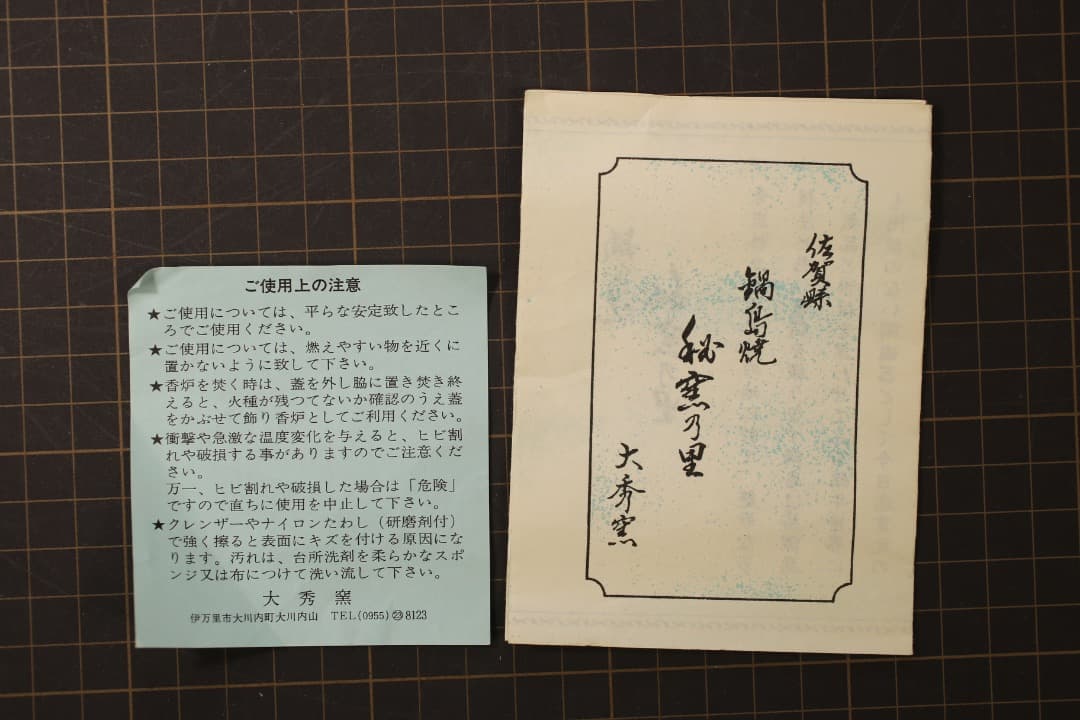 ご使用上の注意
★ご使用については、平らな安定致したとこ
ろでご使用ください。
★ご使用については、燃えやすい物を近くに
置かないように致して下さい。
★香炉を焚く時は、蓋を外し脇に置き焚き終
えると、火種が残つてないか確認のうえ蓋
をかぶせて飾り香炉としてご利用ください。
★衝撃や急激な温度変化を与えると、ヒビ割
れや破損する事がありますのでご注意くだ
さい。
万一、ヒビ割れや破損した場合は「危険」
ですので直ちに使用を中止して下さい。
★クレンザーやナイロンたわし(研磨剤付)
で強く擦ると表面にキズを付ける原因にな
ります。汚れは、台所洗剤を柔らかなスポ
ンジ又は布につけて洗い流して下さい。
大秀窯
伊万里市大川内町大川内山 TEL(0955)㉓8123
佐賀縣
鍋島焼
秘窯乃里
大秀窯